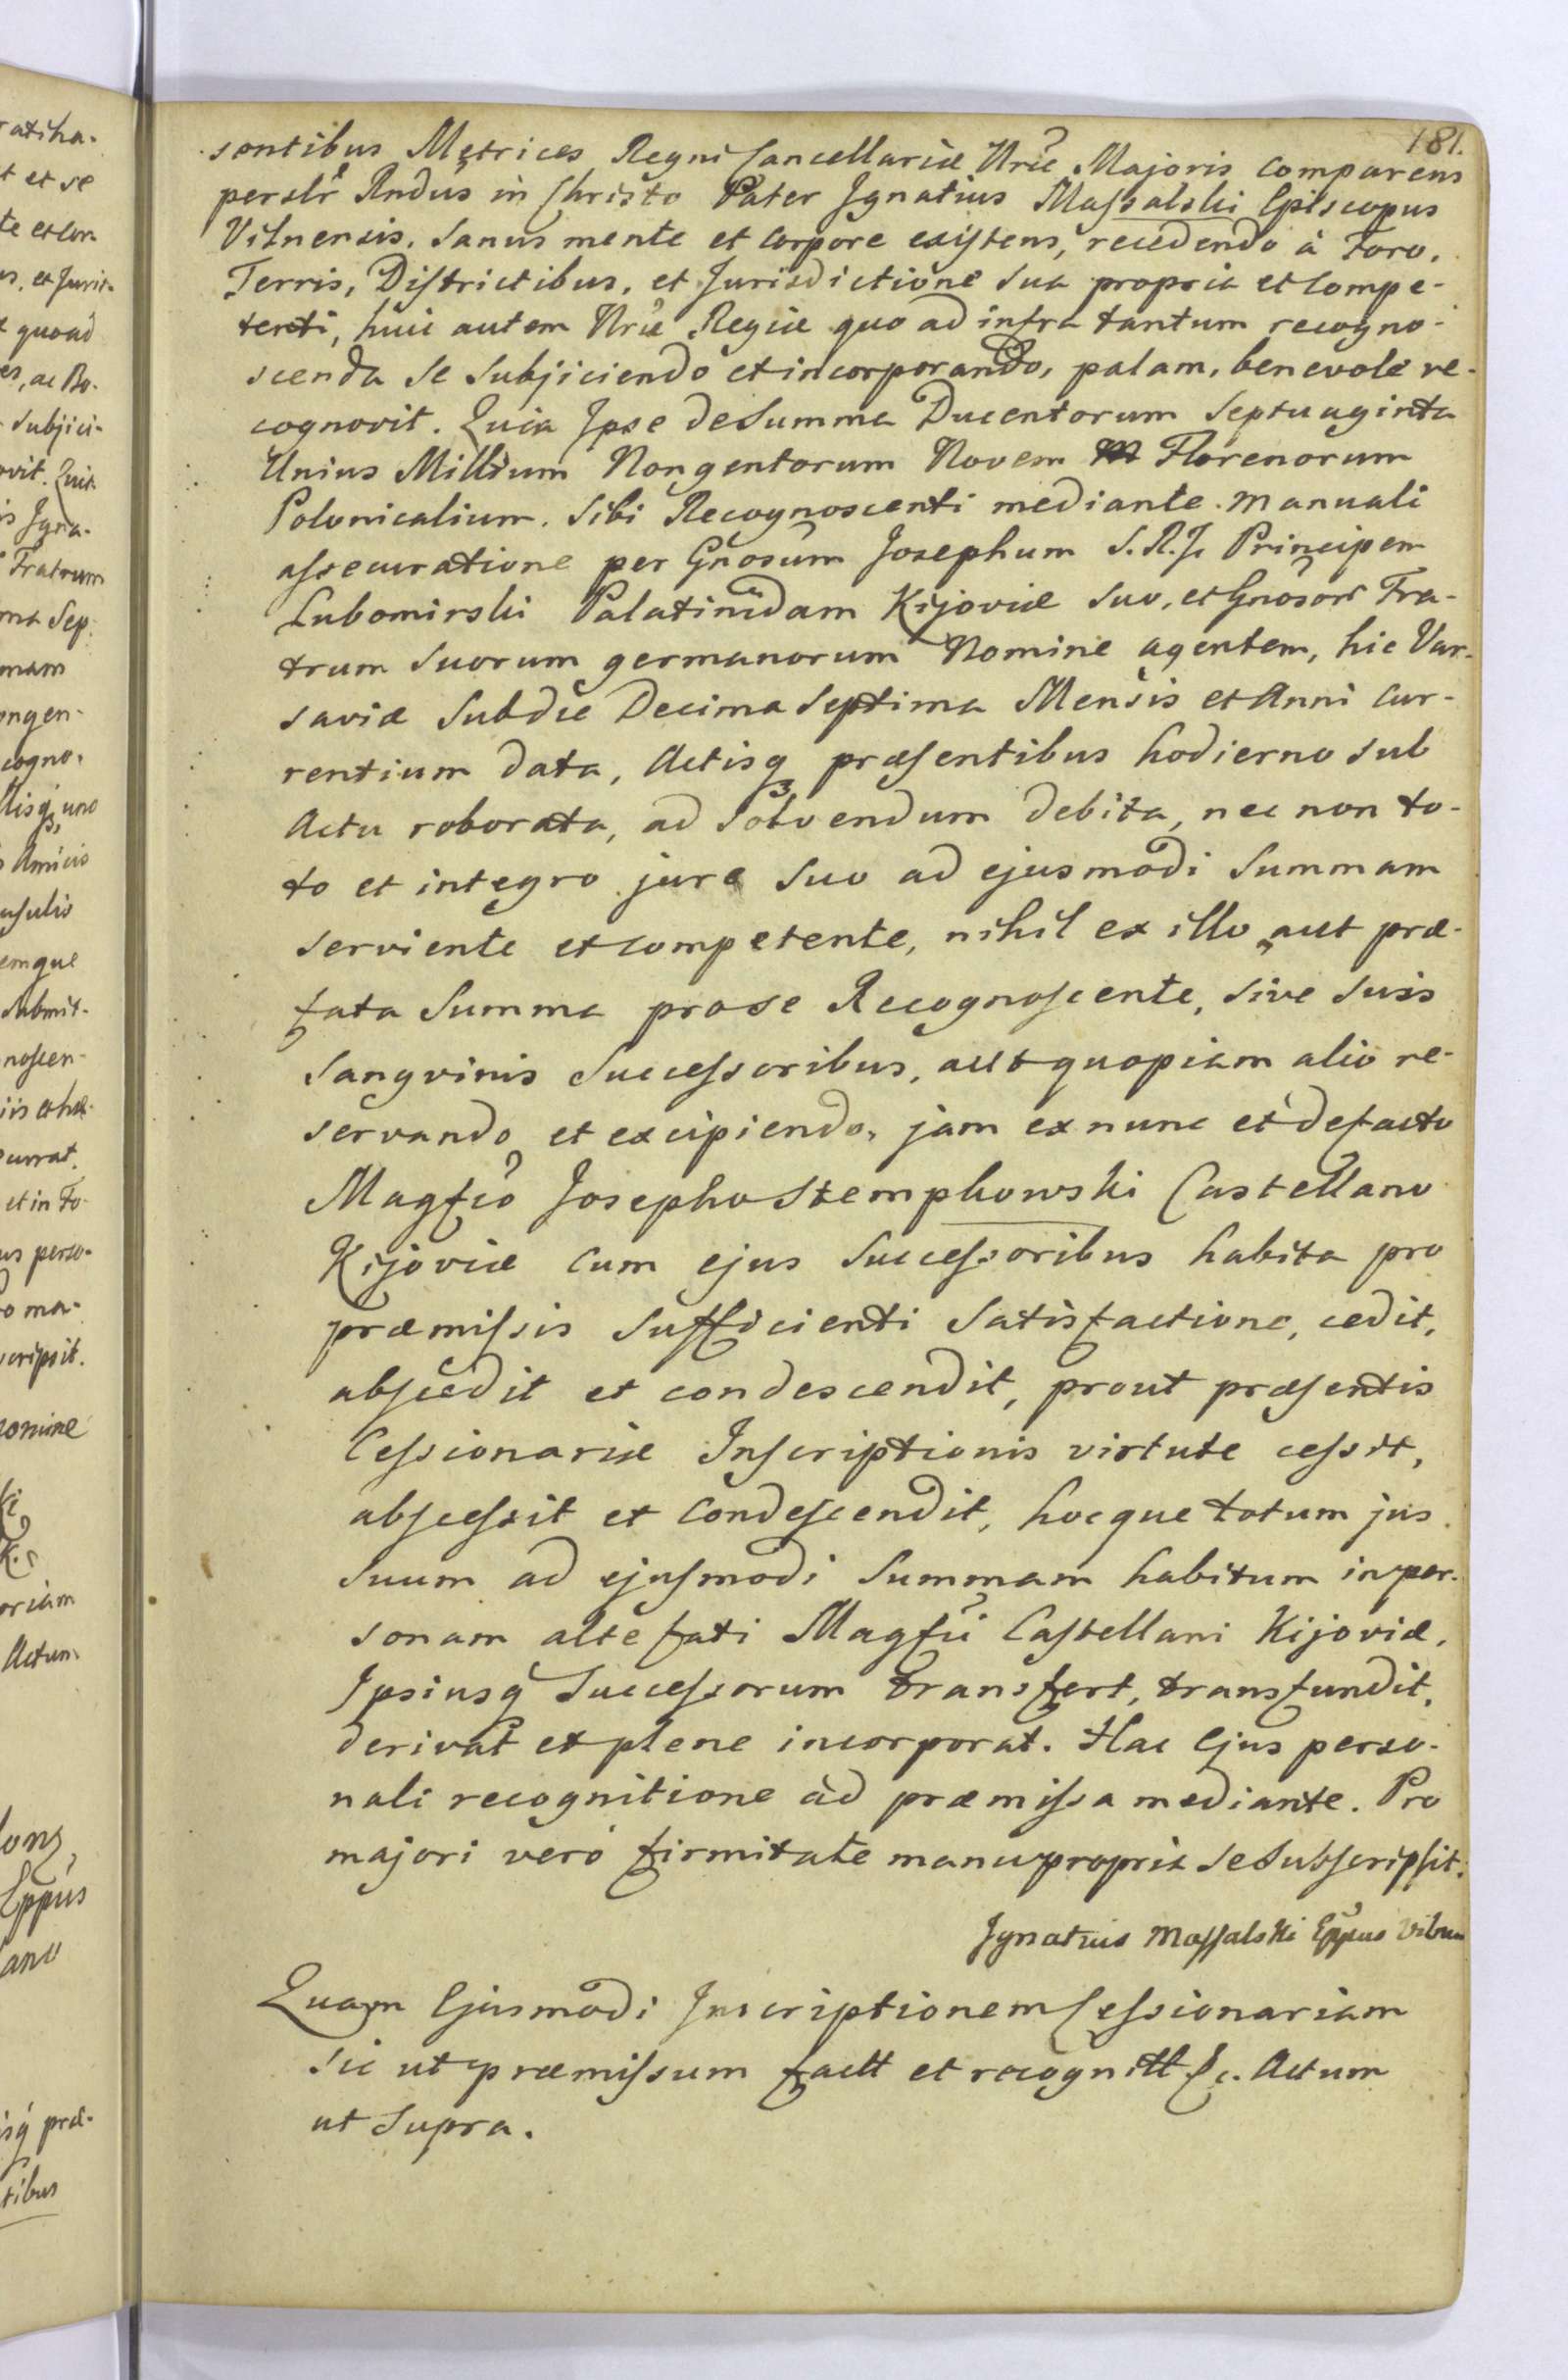 181.
sentibus Metrices Regni Cancellariæ Nræ Majoris comparens
perslr Rndus in Christo Pater Ignatius Massalski Episcopus
Vilnensis, sanus mente et corpore existens, recedendo à Foro,
Terris, Districtibus, et Jurisdictione sua propria et compe-
tenti, huic autem Nræ Regiæ quo ad infra tantum recogno-
scenda se subjiciendo et incorporando, palam, benevole re-
cognovit. Quia Ipse de Summa Ducentorum Septuaginta
Unius Millium Nongentorum Novem Florenorum
Polonicalium, sibi Recognoscenti mediante manuali
assecuratione per Gnosum Josephum S.R.I. Principem
Lubomirski Palatinidam Kijoviæ suo, et Gnosor Fra-
trum suorum germanorum Nomine agentem, hic Var-
saviæ sub die Decima Septima Mensis et Anni cur-
rentium data, Actisq præsentibus hodierno sub
Actu roborata, ad solvendum debita, nec non to-
to et integro jure suo ad ejusmodi Summam
serviente et competente, nihil ex illo, aut præ-
fata Summa pro se Recognoscente, sive suis
sangvinis successoribus, aut quopiam alio re-
servando et excipiendo, jam ex nunc et de facto
Magfco Josepho Stempkowski Castellano
Kijoviæ cum ejus successoribus habita pro
præmissis sufficienti satisfactione, cedit,
abscedit et condescendit, prout præsentis
Cessionariæ Inscriptionis virtute cessit,
abscessit et condescendit, hocque totum jus
suum ad ejusmodi Summam habitum in per-
sonam alte fati Magfci Castellani Kijoviæ,
Ipsiusq successorum transfert, transfundit,
derivat et plene incorporat. Hac Ejus perso-
nali recognitione ad præmissa mediante. Pro
majori vero firmitate manu propria se subscripsit.
Ignatius Massalski Eppus Viln
Quam Ejusmodi Inscriptionem Cessionariam
sic ut præmissum factt et recognitt &c. Actum
ut supra.